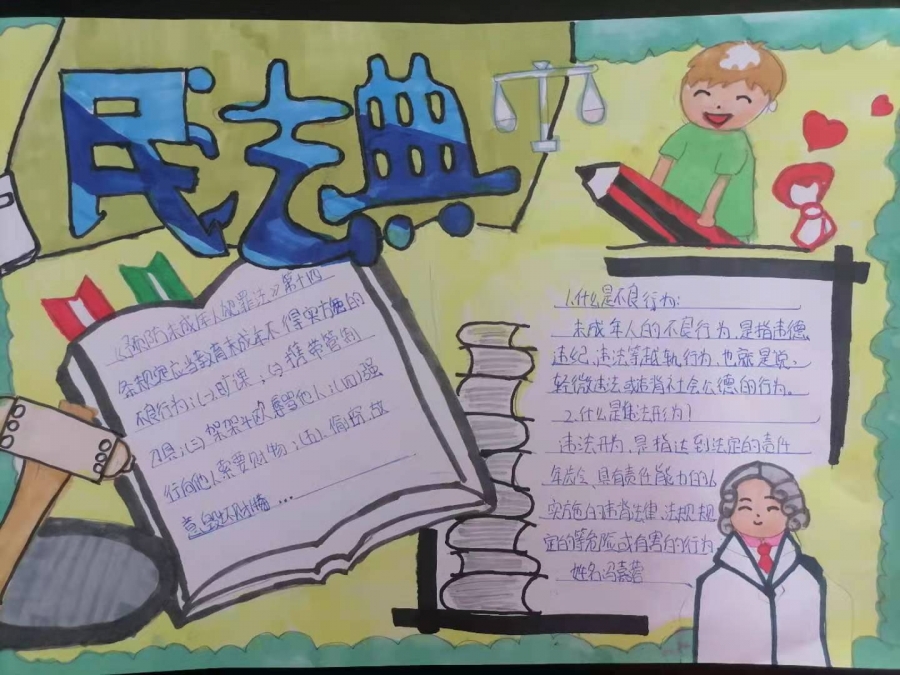 民法典
《预防未成年人犯罪法》第十四
条规定应当教育未成年不得实施的
不良行为:(一)旷课;(二)携带管制
刀具;(三)架架斗殴辱骂他人;(四)强
行向他人索要财物;(五)偷窃、故
意毁坏财物…
1.什么是不良行为:
未成年人的不良行为,是指违德
违纪、违法等越轨行为,也就是说、
轻微违法或违背社会公德的行为。
2.什么是违法形为1
违法开为,是指达到法定的责任
年龄、具有责任能力的
实施的违背法律、法规规
定的等危险或有害的行为
姓名冯嘉萱